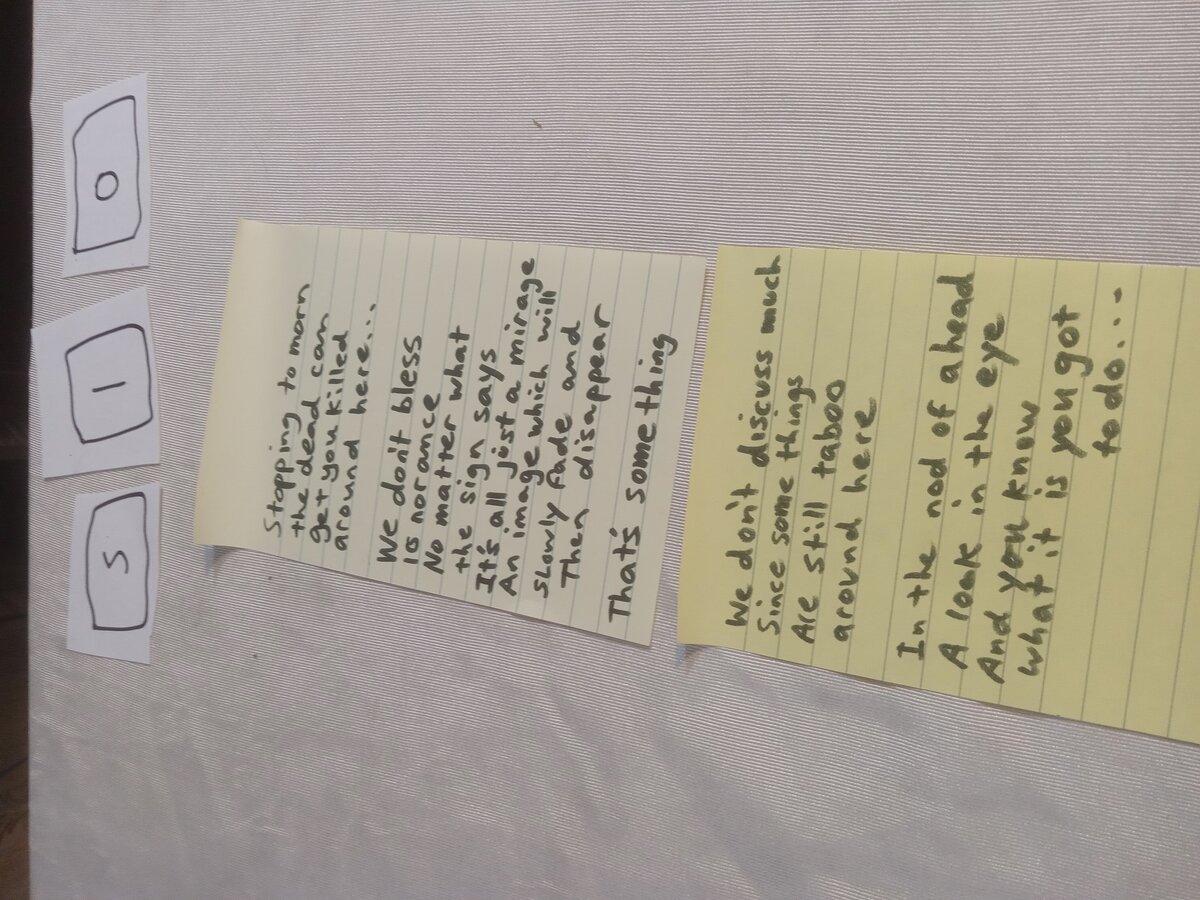 S I O
Stopping to morn
the dead can
get you killed
around here...
We don't bless
is norance
No matter what
the sign says
It's all just a mirage
An image which will
slowly fade and
Then disappear
That's something
We don't discuss much
Since some things
Are still taboo
around here
In the nod of ahead
A look in the eye
And you know
what it is you got
to do...-